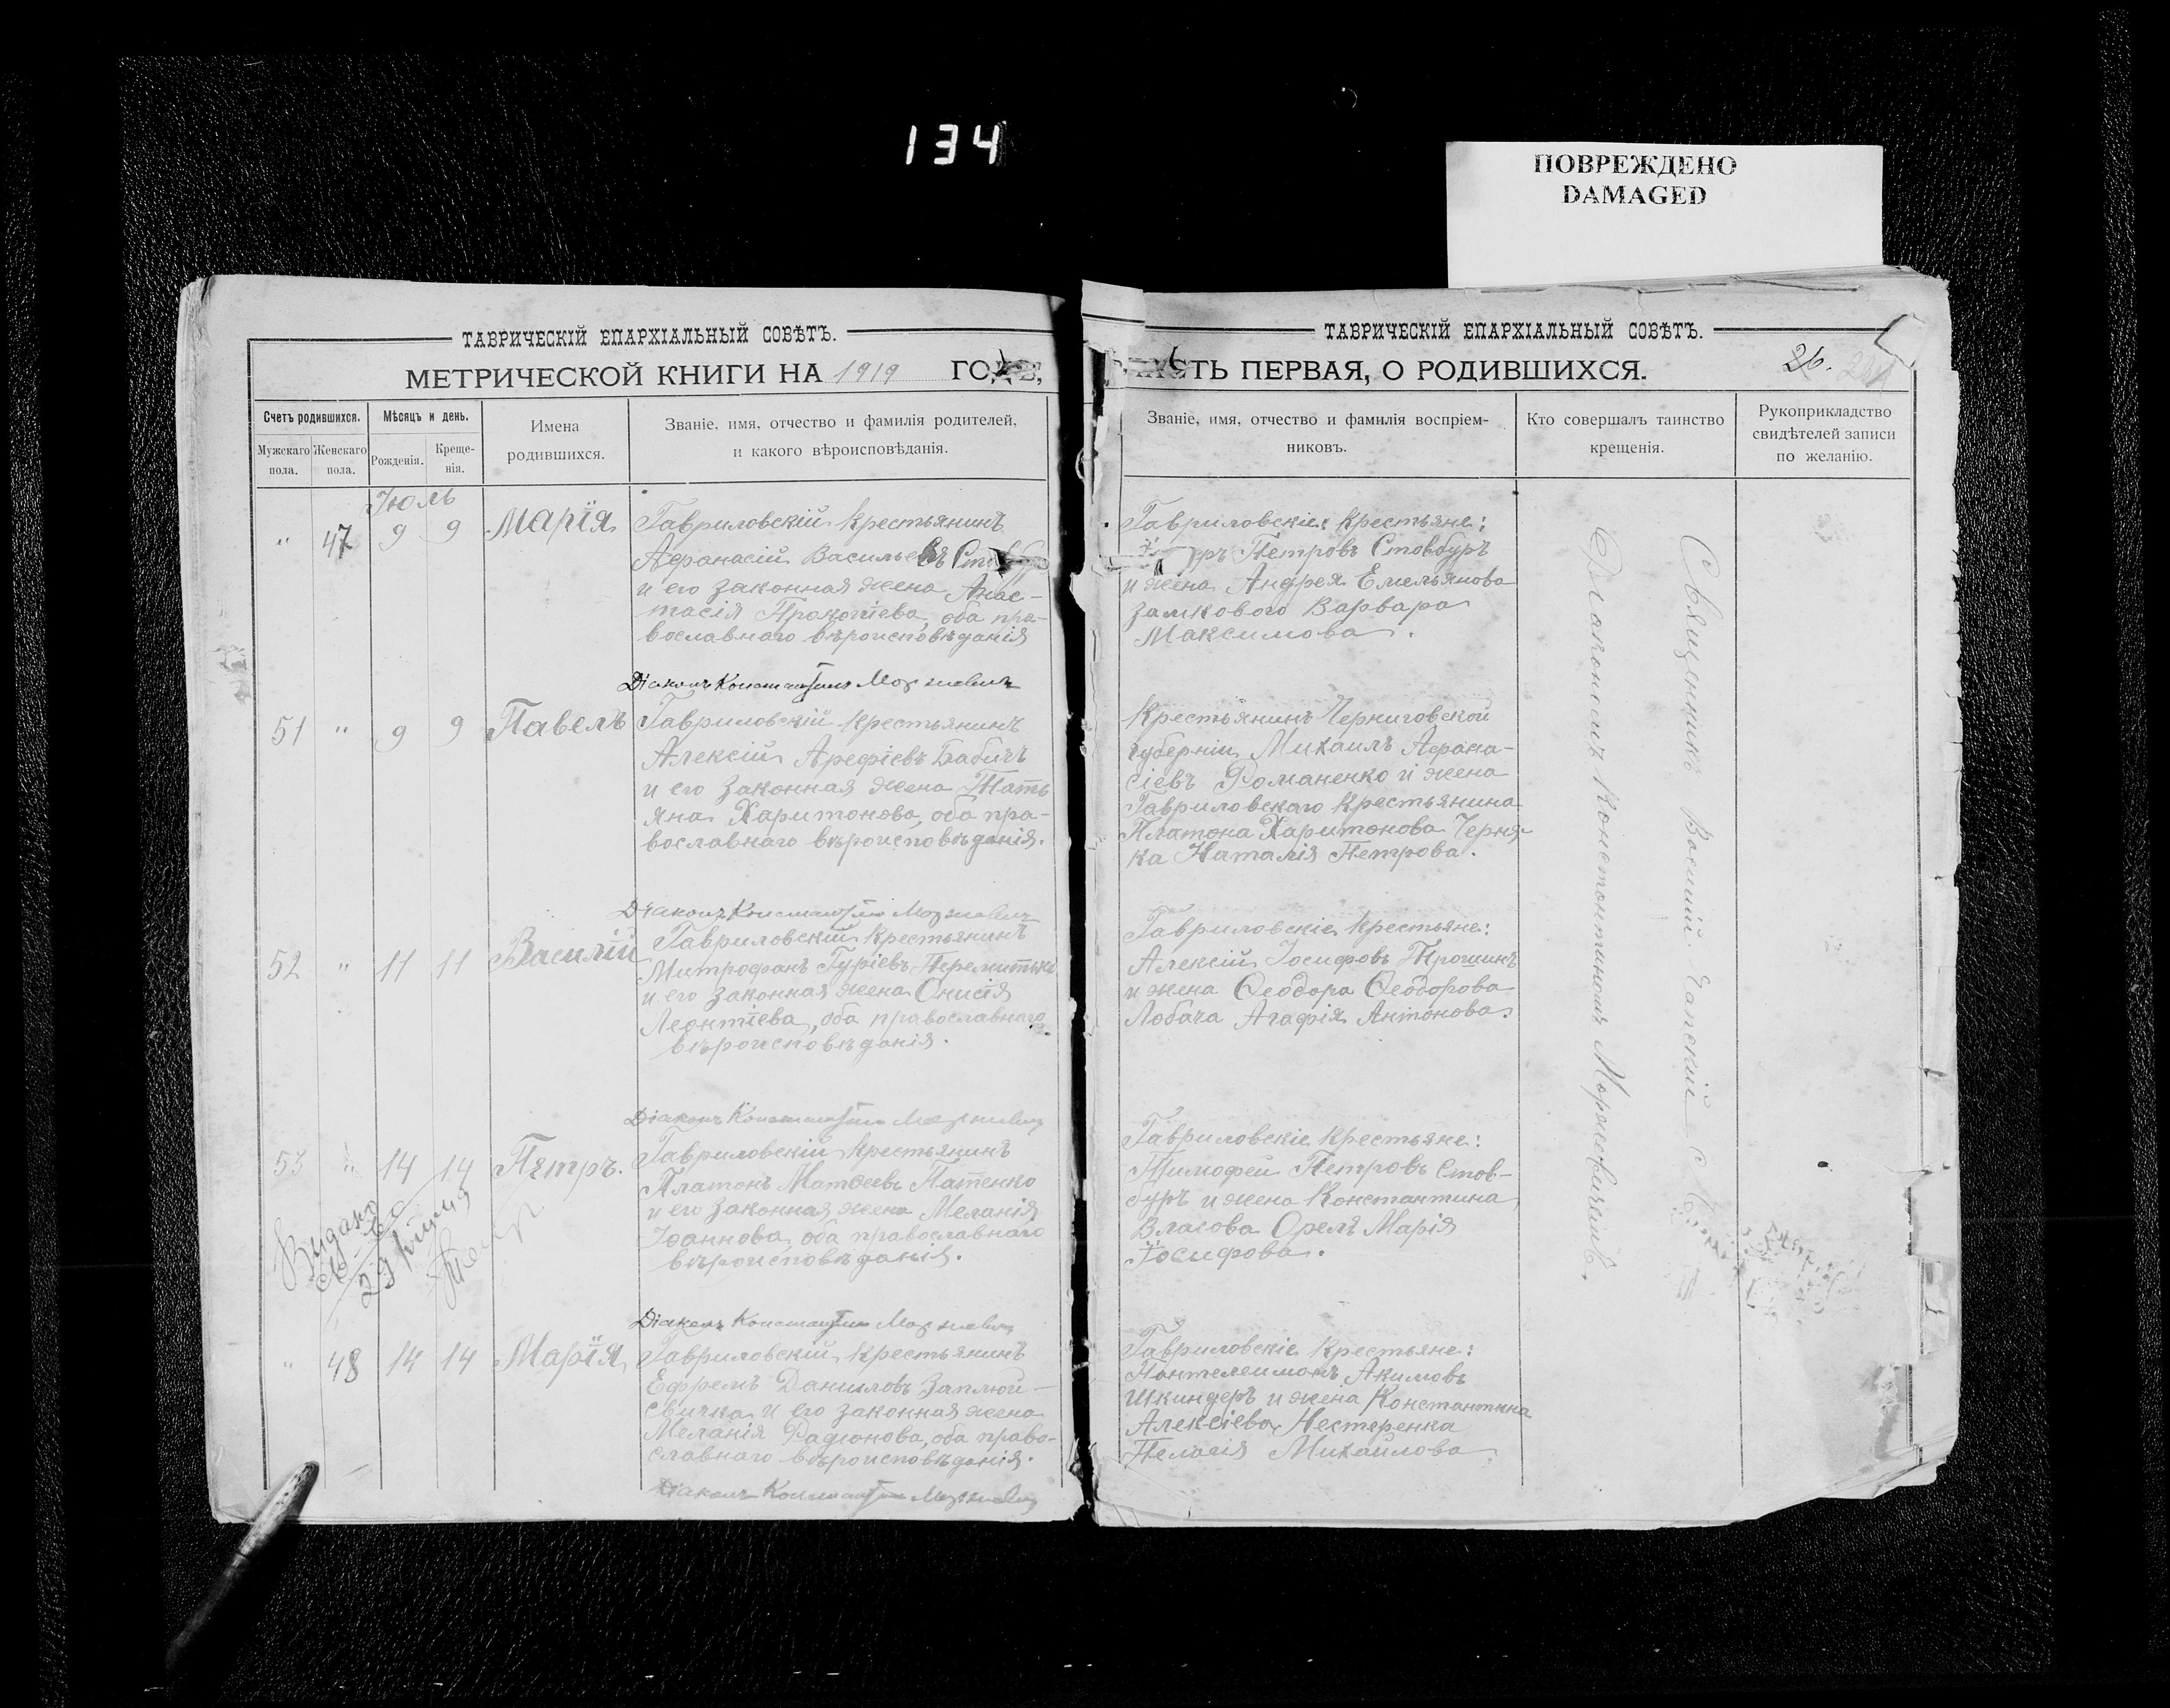 134
ПОВРЕЖДЕНО
DAMAGED
ТАВРИЧЕСКІЙ ЕПАРХІАЛЬНЫЙ СОВѢТЪ.
МЕТРИЧЕСКОЙ КНИГИ НА 1919
Счетъ родившихся.
Мужскаго пола.
Женскаго пола.
Мѣсяцъ и день.
Рожденія.
Креще-
нія.
Имена
родившихся.
Званіе, имя, отчество и фамилія родителей,
и какого вѣроисповѣданія.
Іюль
" 47 9 9 Марія
Гавриловскій крестьянинъ
Афанасій Васильевъ
и его законная жена Анас-
тасія Прокопіева, оба пра-
вославнаго вѣроисповѣданія
Діаконъ Константинъ
51 " 9 9 Павелъ
Гавриловскій крестьянинъ
Алексій Арефіевъ Бабичъ
и его законная жена Тать
яна Харитонова, оба пра-
вославнаго вѣроисповѣданія.
Діаконъ Константинъ
52 " 11 11 Василій
Гавриловскій крестьянинъ
Митрофанъ Гуріевъ
и его законная жена Онисія
Леонтіева, оба православнаго
вѣроисповѣданія.
Діаконъ Константинъ
53 " 14 14 Петръ.
Гавриловскій крестьянинъ
Платонъ Матѳеевъ Патенко
и его законная жена Меланія
Іоаннова, оба православнаго
вѣроисповѣданія.
Видано
Діаконъ Константинъ
" 48 14 14 Марія
Гавриловскій крестьянинъ
Ефремъ Даниловъ Заплюй-
свичка и его законная жена
Меланія Радіонова, оба право-
славнаго вѣроисповѣданія.
Діаконъ Константинъ
ТАВРИЧЕСКІЙ ЕПАРХІАЛЬНЫЙ СОВѢТЪ.
СТЬ ПЕРВАЯ, О РОДИВШИХСЯ.
26.
Званіе, имя, отчество и фамилія воспріем-
никовъ.
Кто совершалъ таинство
крещенія.
Рукоприкладство
свидѣтелей записи
по желанію.
Гавриловскіе крестьяне:
Петровъ Стовбуръ
и жена Андрея Емельянова
Замкового Варвара
Максимова.
Крестьянинъ Черниговской
губерніи Михаилъ Афана-
сіевъ Романенко и жена
Гавриловскаго крестьянина
Платона Харитонова Черня-
ка Наталія Петрова.
Гавриловскіе крестьяне:
Алексій Іосифовъ Трошинъ
и жена Ѳеодора Ѳеодорова
Лобача Агафія Антонова.
Гавриловскіе крестьяне:
Тимофей Петровъ Стов-
буръ и жена Константина
Власова Орелъ Марія
Іосифова.
Гавриловскіе крестьяне:
Пантелеимонъ Акимовъ
Шкиндеръ и жена Константина
Алексіева Нестеренка
Пелагія Михайлова.
Священникъ Василій
Діакономъ Константиномъ Моржевичемъ.